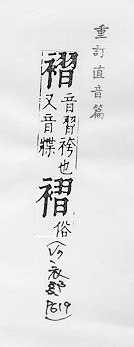 重訂直音篇
褶 音習袴也 又音牒 褶 俗 衣部 P619)